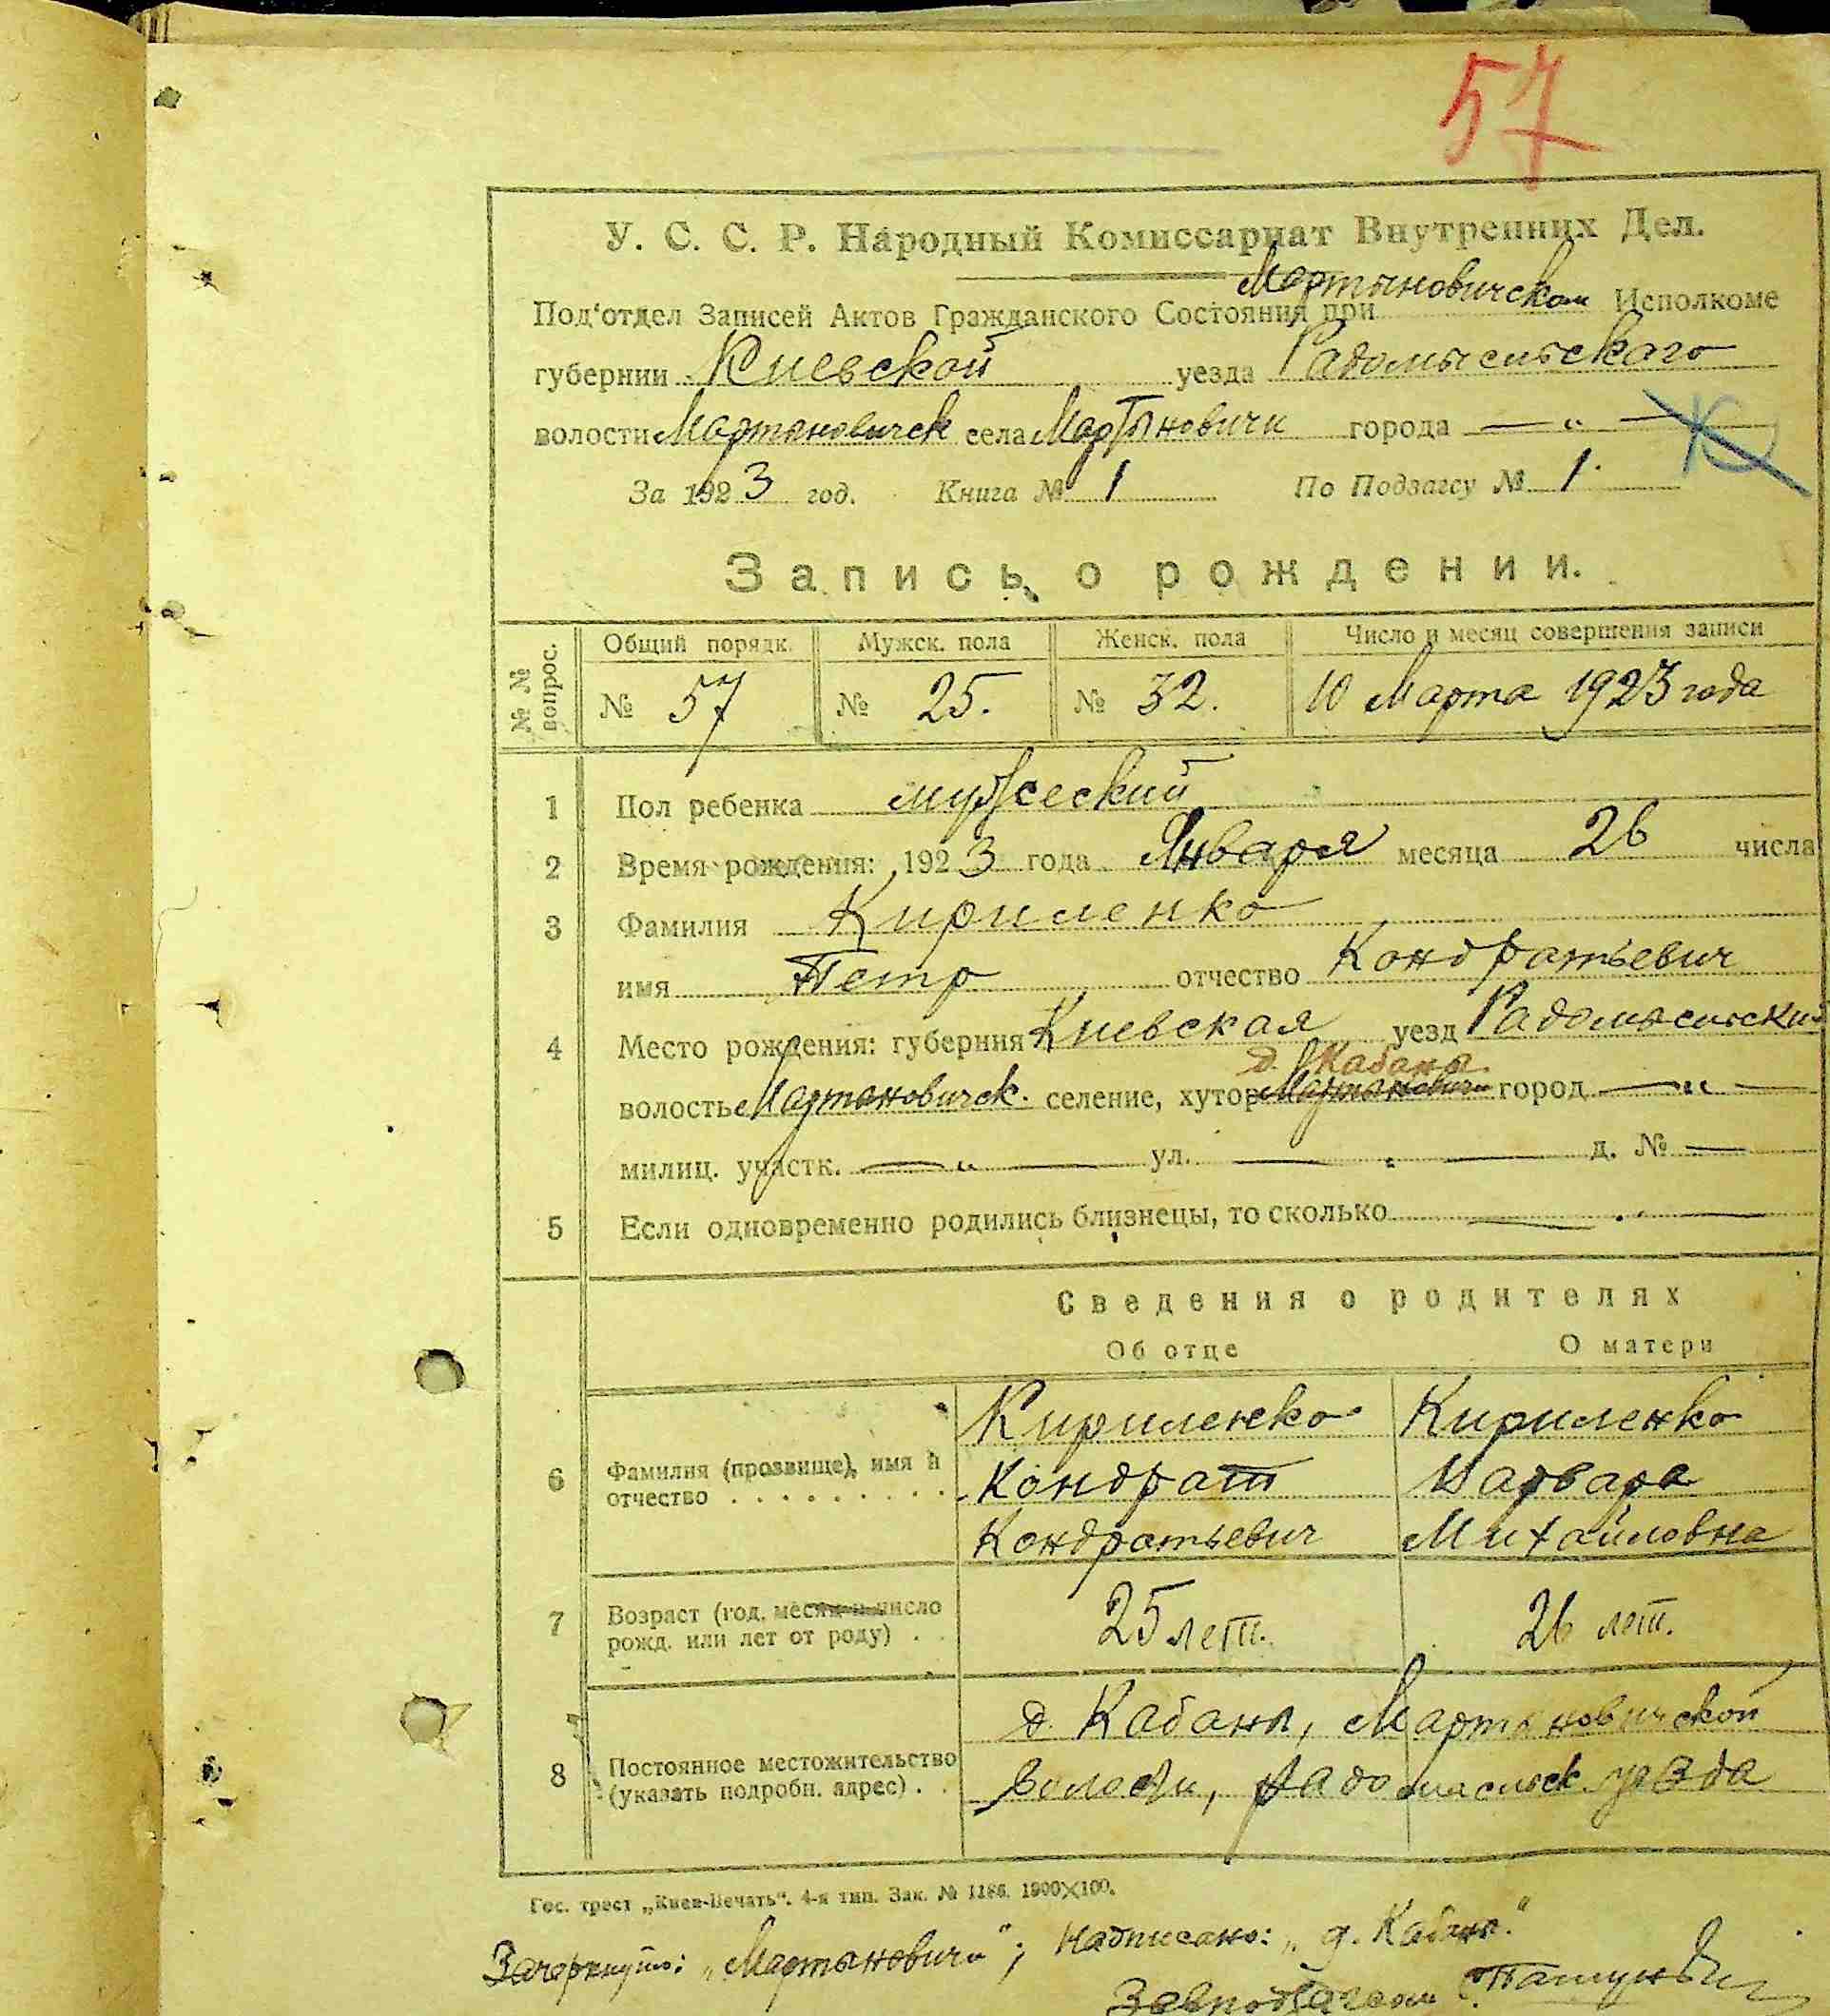 57
У. С. С. Р. Народный Комиссариат Внутренних Дел.
Под'отдел Записей Актов Гражданского Состояния при Мартыновичском Исполкоме
губернии Киевской уезда Радомысльскаго
волости Мартыновичск села Мартыновичи города — „ —
За 1923 год. Книга № 1 По Подзагсу № 1.
Запись о рождении.
№ № вопрос. Общий порядк. Мужск. пола Женск. пола Число и месяц совершения записи
№ 57 № 25. № 32. 10 Марта 1923 года
1 Пол ребенка мужеский
2 Время рождения: 1923 года Января месяца 26 числа
3 Фамилия Кириленко
имя Петр отчество Кондратьевич
4 Место рождения: губерния Киевская уезд Радомысльский
д. Кабаны
волость Мартыновичск. селение, хутор Мартыновичи город — „ —
милиц. участк. — „ — ул. — „ — д. № —
5 Если одновременно родились близнецы, то сколько — „ —
Сведения о родителях
Об отце О матери
Кириленко Кириленко
6 Фамилия (прозвище), имя и отчество . . . . . . . . . Кондрат Варвара
Кондратьевич Михайловна
7 Возраст (год, месяц и число рожд. или лет от роду) . . 25 лет. 26 лет.
д. Кабаны, Мартыновичской
8 Постоянное местожительство (указать подробн. адрес) . . волости, Радомысльск уезда
Гос. трест „Киев-Печать“. 4-я тип. Зак. № 1186. 1900×100.
Зачеркнуто: „Мартыновичи“; Надписано: „д. Кабаны“.
Завподзагсом